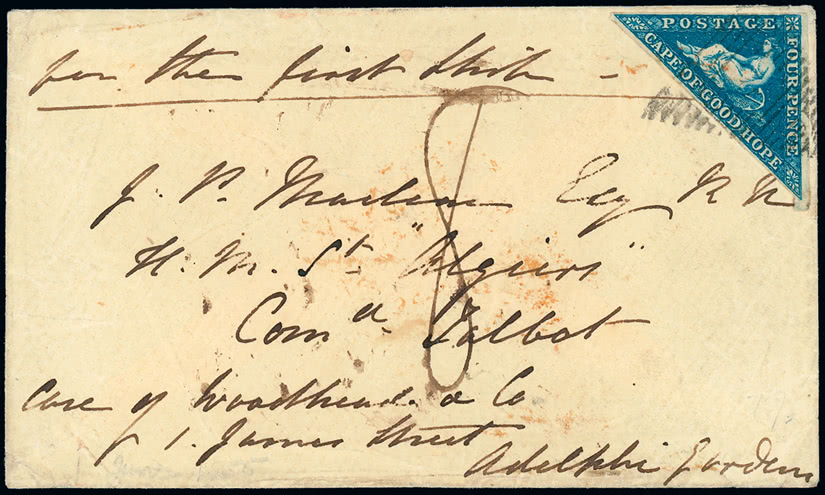 per the first Ship -
POSTAGE
FOUR PENCE
CAPE OF GOOD HOPE
8
J. P. Esq R N
H. M. St. "Algiers"
Comd. Talbot
care of Woodhead & Co
1. James Street
Adelphi Gardens